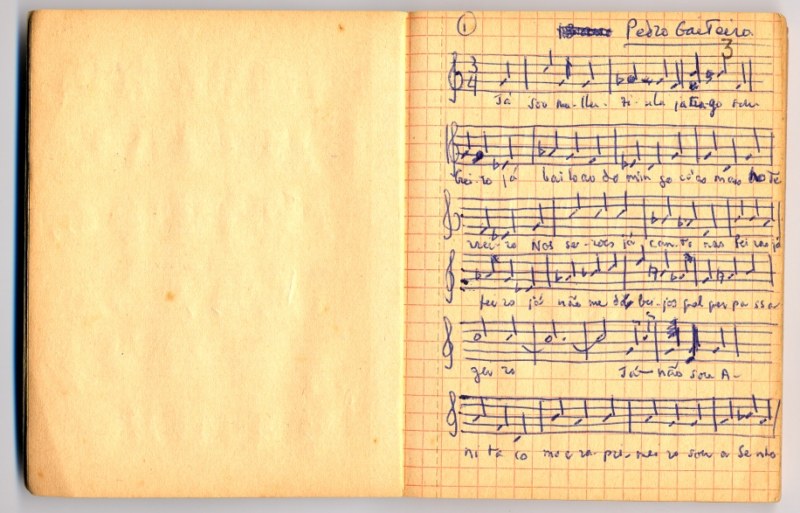 1 Pedro Gaiteiro
3
3 4
Já sou mu-lher-zi-nha já trago sem
trei-ro já bai-lo ao do min go có ás mais no Te
rrei-ro Nos se-rões já can-to nas fei ras já
fei ro já não me dá bei-jos qual quer pa ssa
gei ro Já não sou A-
ni ta co mo e ra pri-mei ro sou a Se nho